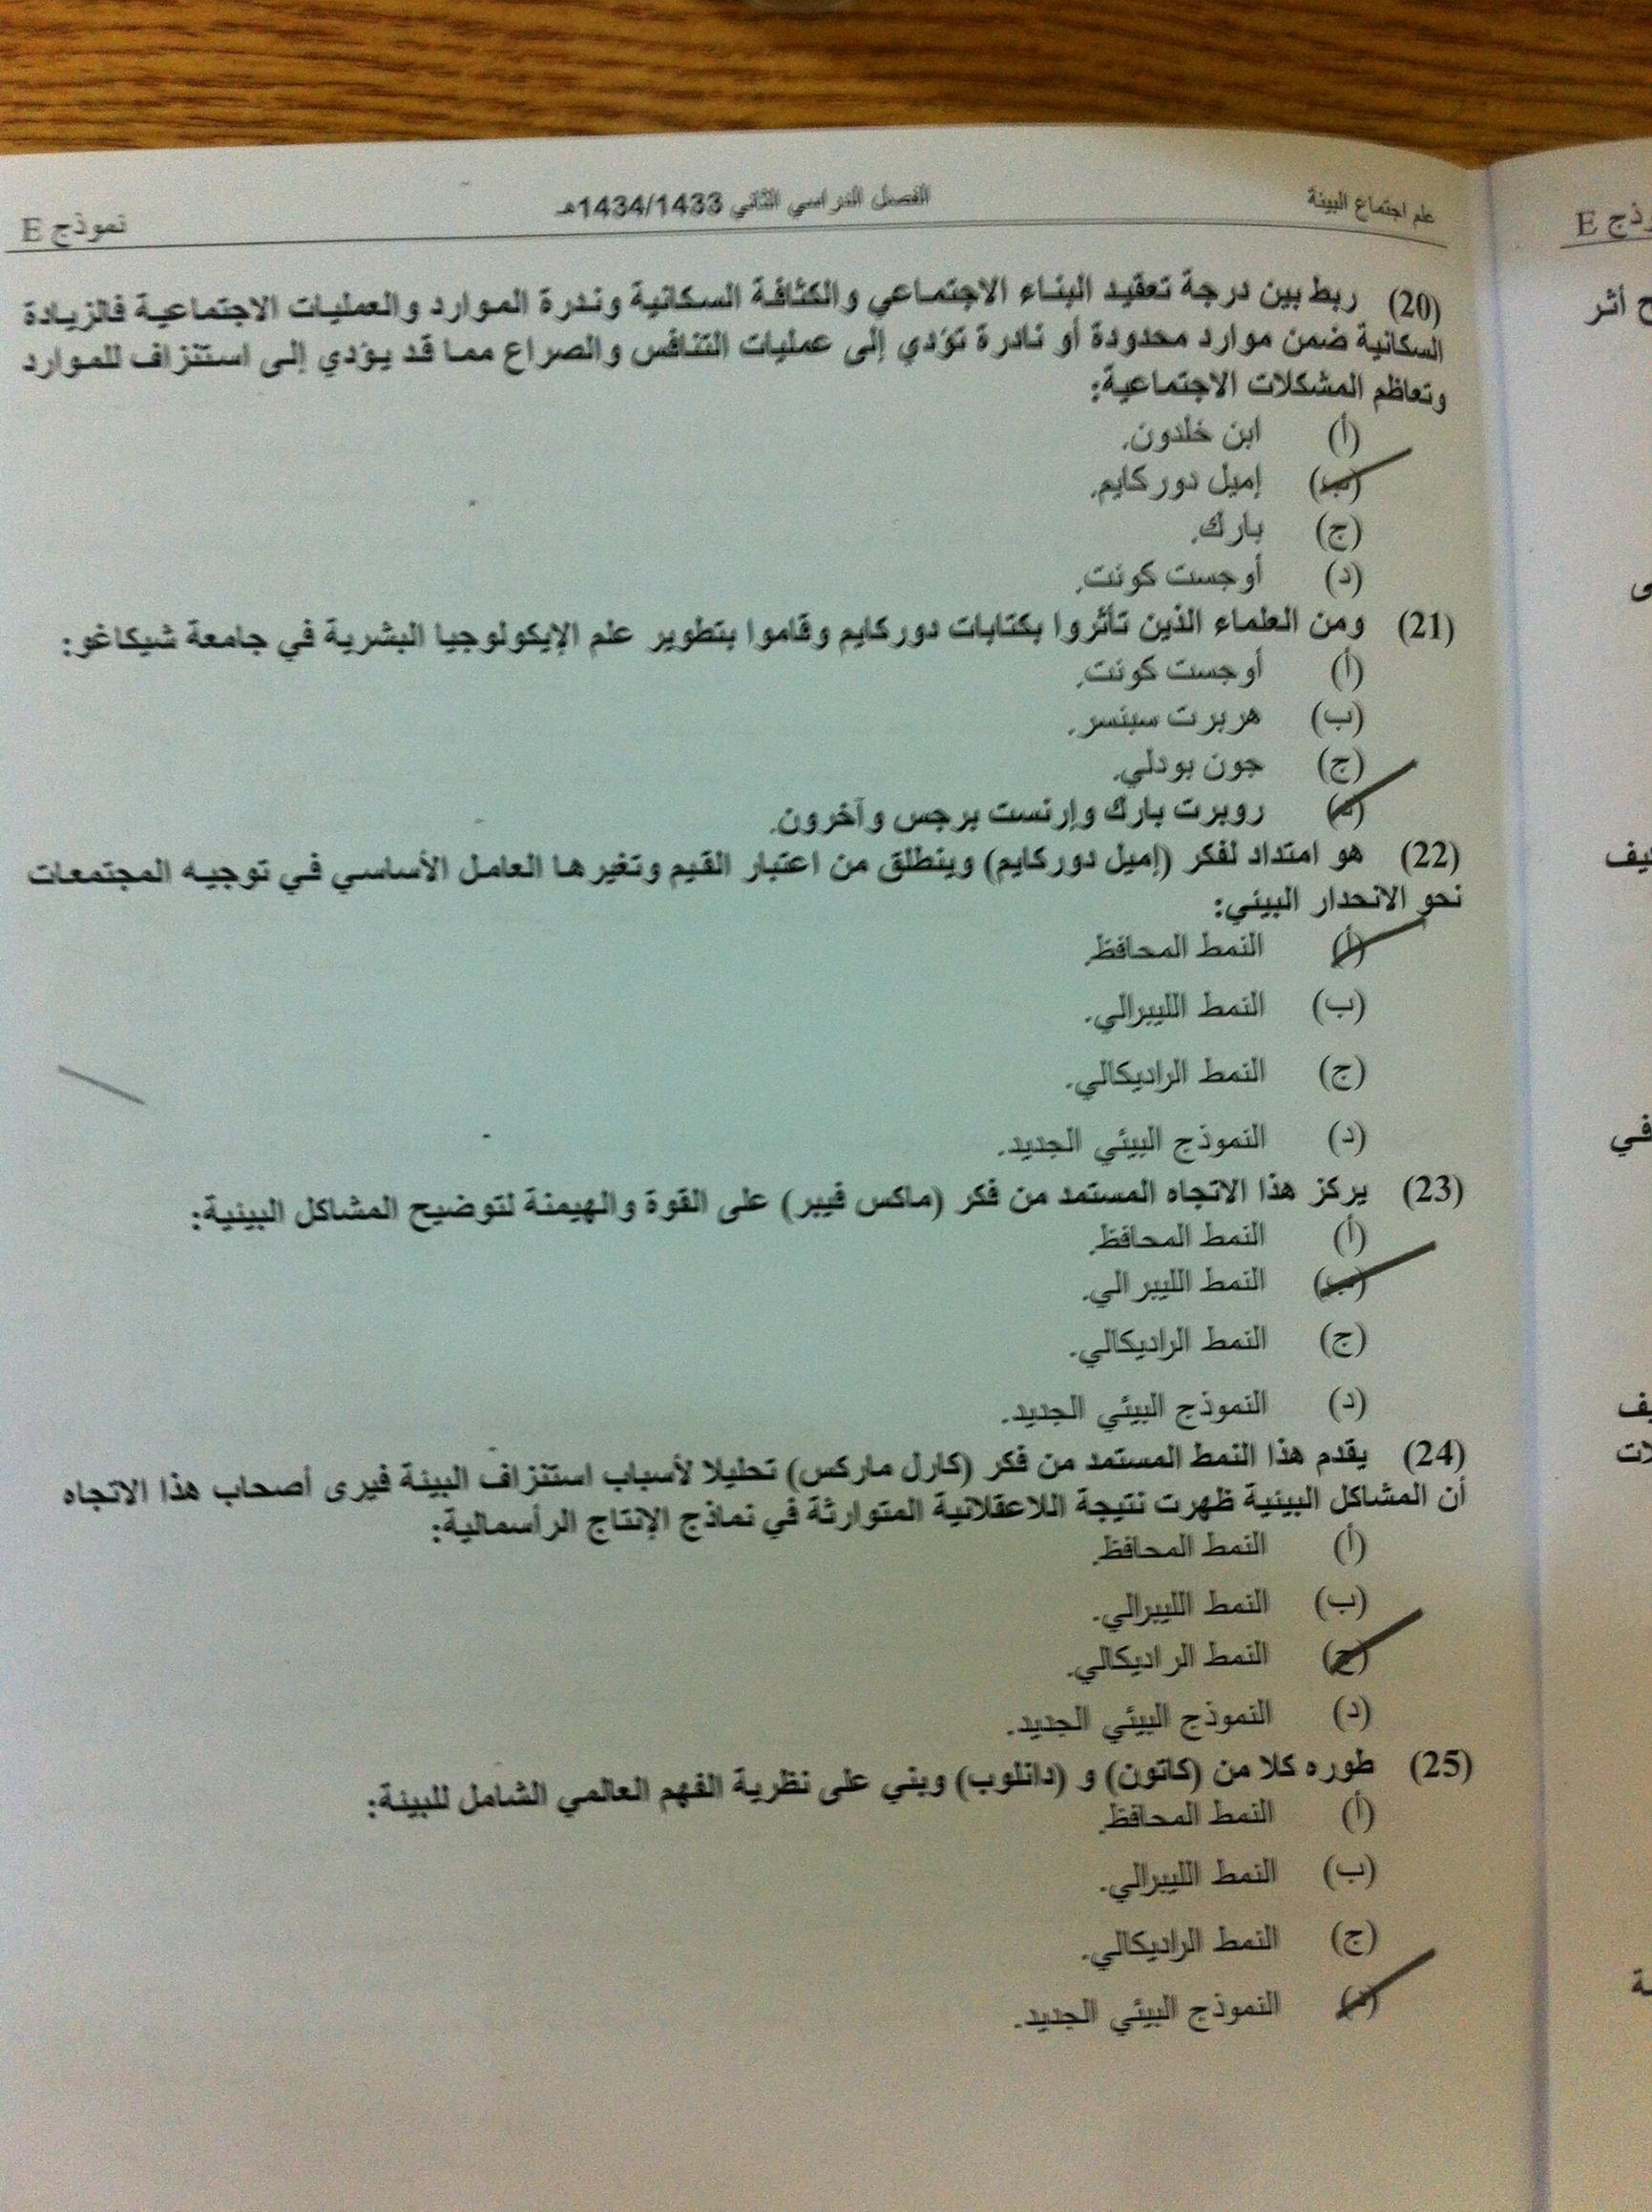 علم اجتماع البيئة الفصل الدراسي الثاني 1434/1433هـ نموذج E
(20) ربط بين درجة تعقيد البناء الاجتماعي والكثافة السكانية وندرة الموارد والعمليات الاجتماعية فالزيادة
السكانية ضمن موارد محدودة أو نادرة تؤدي إلى عمليات التنافس والصراع مما قد يؤدي إلى استنزاف للموارد
وتعاظم المشكلات الاجتماعية:
(أ) ابن خلدون.
(ب) إميل دوركايم.
(ج) بارك.
(د) أوجست كونت.
(21) ومن العلماء الذين تأثروا بكتابات دوركايم وقاموا بتطوير علم الإيكولوجيا البشرية في جامعة شيكاغو:
(أ) أوجست كونت.
(ب) هربرت سبنسر.
(ج) جون بودلي.
(د) روبرت بارك وإرنست برجس وآخرون.
(22) هو امتداد لفكر (إميل دوركايم) وينطلق من اعتبار القيم وتغيرها العامل الأساسي في توجيه المجتمعات
نحو الانحدار البيئي:
(أ) النمط المحافظ.
(ب) النمط الليبرالي.
(ج) النمط الراديكالي.
(د) النموذج البيئي الجديد.
(23) يركز هذا الاتجاه المستمد من فكر (ماكس فيبر) على القوة والهيمنة لتوضيح المشاكل البيئية:
(أ) النمط المحافظ.
(ب) النمط الليبرالي.
(ج) النمط الراديكالي.
(د) النموذج البيئي الجديد.
(24) يقدم هذا النمط المستمد من فكر (كارل ماركس) تحليلا لأسباب استنزاف البيئة فيرى أصحاب هذا الاتجاه
أن المشاكل البيئية ظهرت نتيجة اللاعقلانية المتوارثة في نماذج الإنتاج الرأسمالية:
(أ) النمط المحافظ.
(ب) النمط الليبرالي.
(ج) النمط الراديكالي.
(د) النموذج البيئي الجديد.
(25) طوره كلا من (كاتون) و (دانلوب) وبني على نظرية الفهم العالمي الشامل للبيئة:
(أ) النمط المحافظ.
(ب) النمط الليبرالي.
(ج) النمط الراديكالي.
(د) النموذج البيئي الجديد.